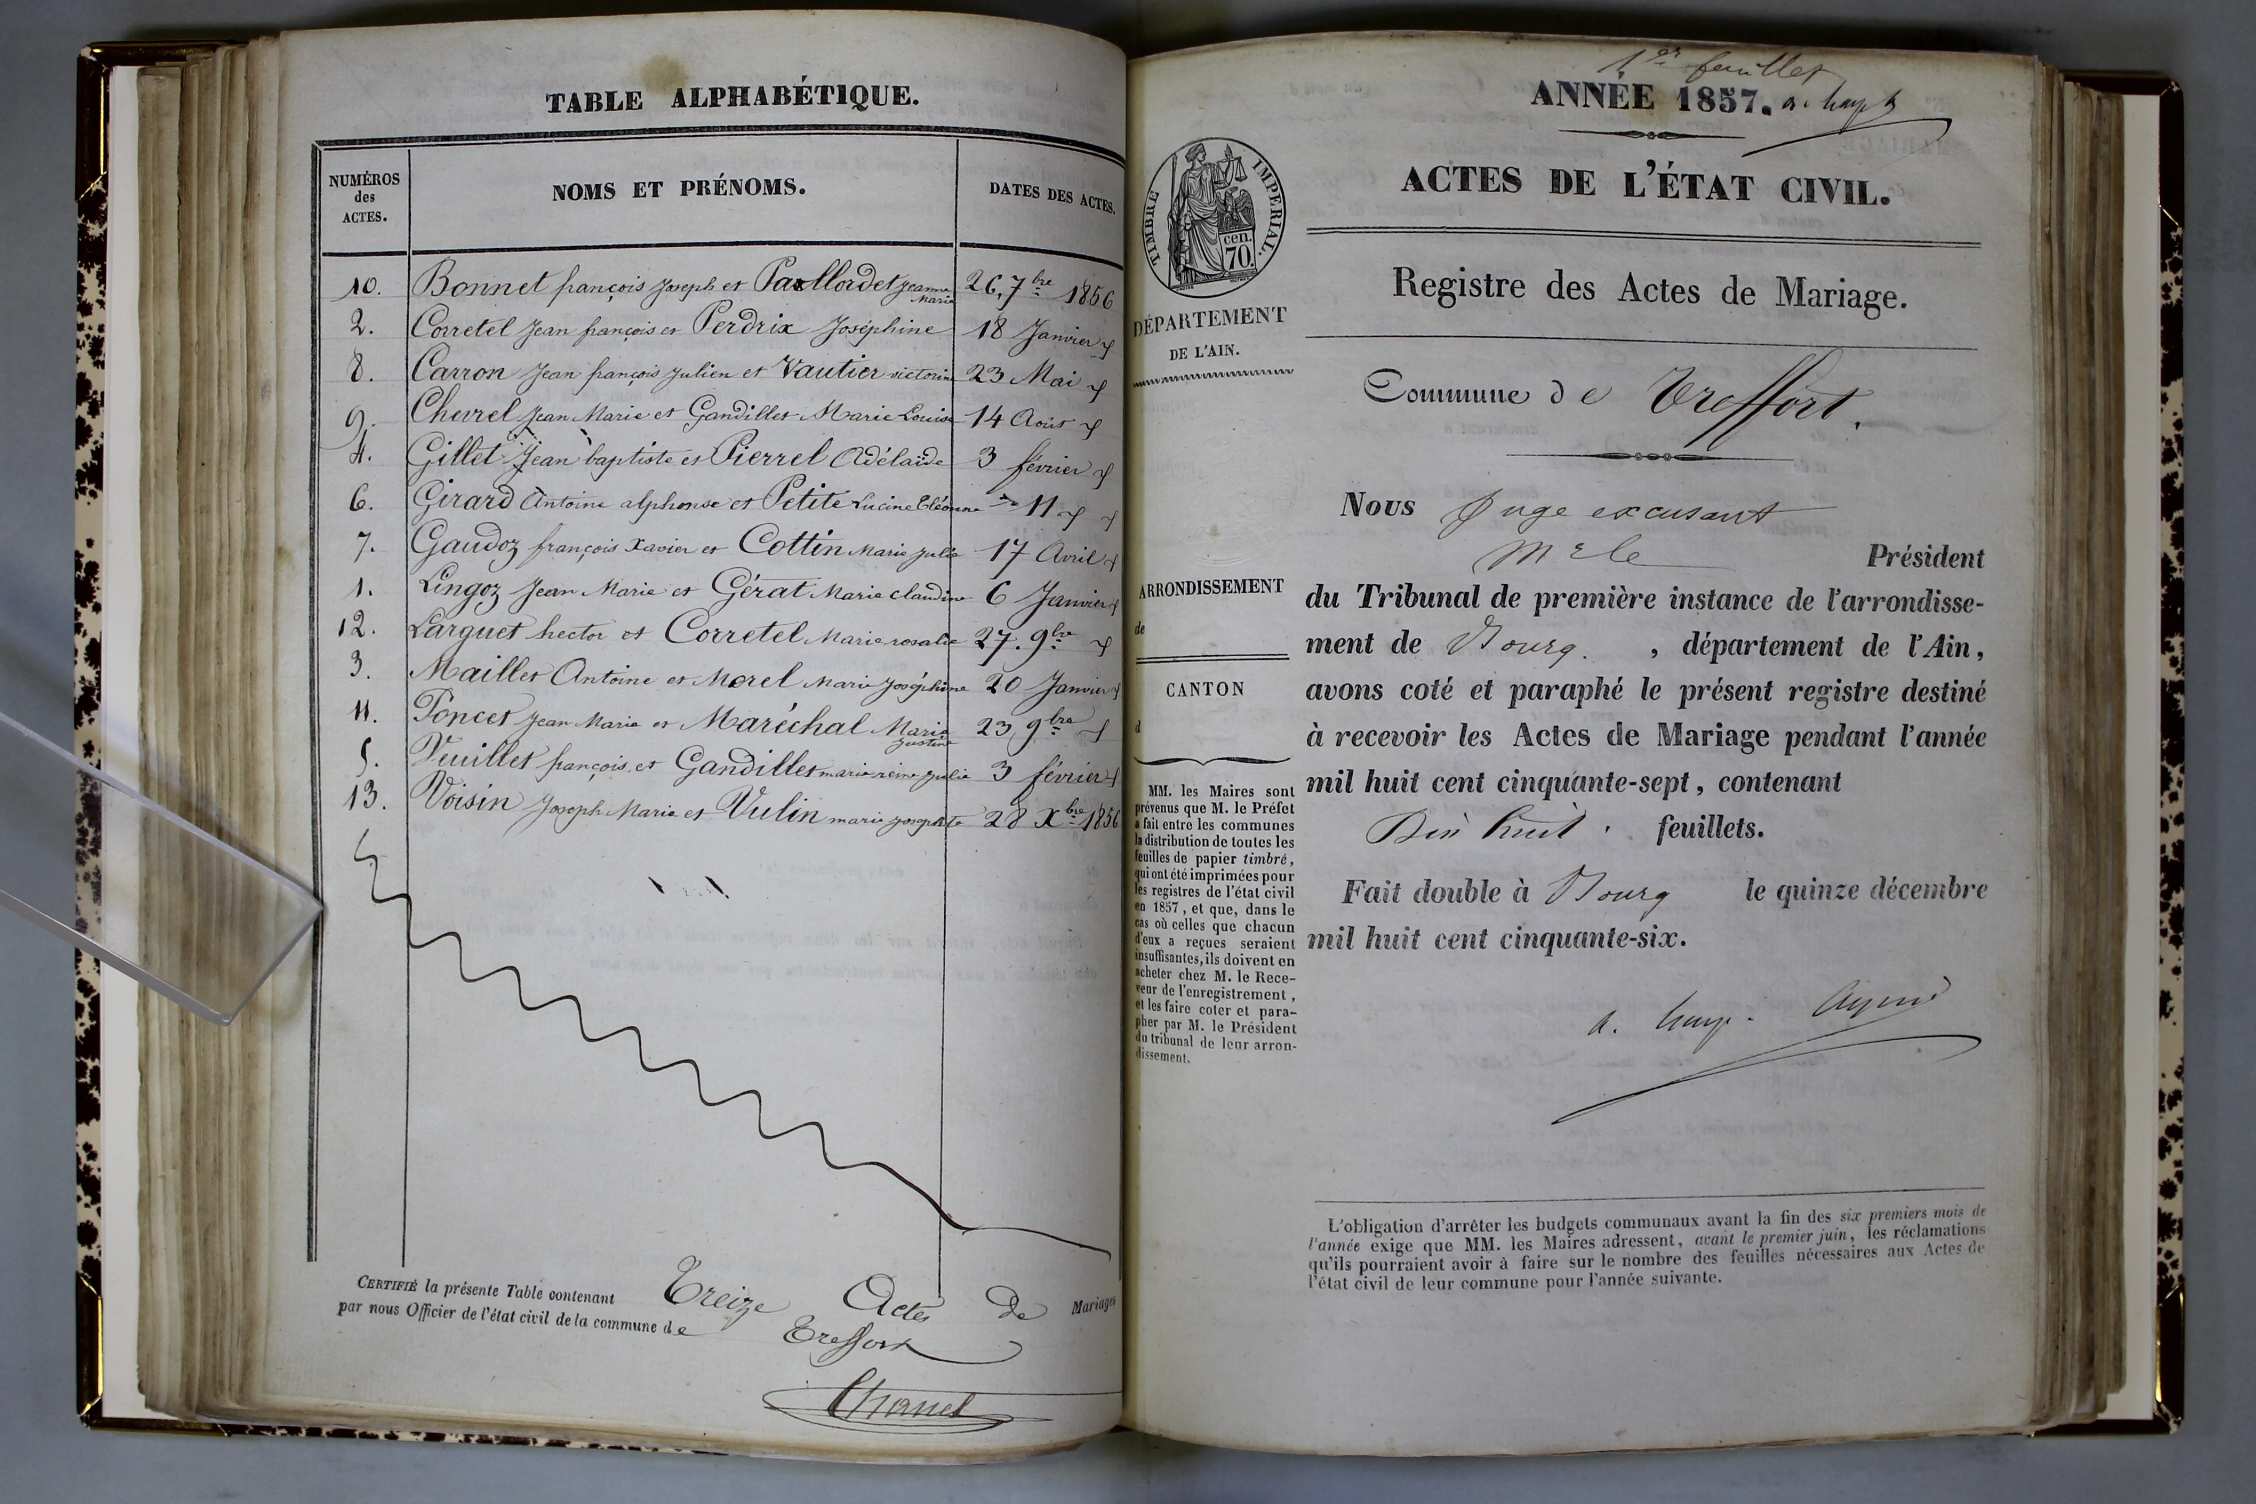 TABLE ALPHABÉTIQUE.
NUMÉROS
des
ACTES.
NOMS ET PRÉNOMS.
DATES DES ACTES.
10. Bonnet françois Joseph et Paollordet Jeanne Marie 26, 7bre 1856
2. Corretel Jean françois et Perdrix Joséphine 18 Janvier
8. Carron Jean françois Julien et Vautier victorine 23 Mai
9. Chevrel Jean Marie et Gandillet Marie Louise 14 Août
4. Gillet Jean baptiste et Pierrel Adélaïde 3 février
6. Girard Antoine alphonse et Petite Lucine Eléonne 11
7. Gaudoz françois Xavier et Cottin Marie Julie 17 Avril
1. Lingoz Jean Marie et Gérat Marie Claudine 6 Janvier
12. Larguet hector et Corretel Marie rosalie 27. 9bre
3. Maillet Antoine et Morel Marie Joséphine 20 Janvier
11. Poncet Jean Marie et Maréchal Marie Justine 23 9bre
5. Veuillet françois et Gandillet marie reine Julie 3 février
13. Voisin Joseph Marie et Vulin marie Josephte 28 Xbre 1856
CERTIFIÉ la présente Table contenant Treize Actes de Mariages
par nous Officier de l'état civil de la commune de Treffort
Chanel
1er feuillet
ANNÉE 1857.
ACTES DE L'ÉTAT CIVIL.
TIMBRE IMPERIAL.
cen.
70.
DÉPARTEMENT
DE L'AIN.
Registre des Actes de Mariage.
Commune de Treffort.
ARRONDISSEMENT
de
CANTON
d
MM. les Maires sont
prévenus que M. le Préfet
a fait entre les communes
la distribution de toutes les
feuilles de papier timbré,
qui ont été imprimées pour
les registres de l'état civil
en 1857, et que, dans le
cas où celles que chacun
d'eux a reçues seraient
insuffisantes, ils doivent en
acheter chez M. le Rece-
veur de l'enregistrement,
et les faire coter et para-
pher par M. le Président
du tribunal de leur arron-
dissement.
Nous Juge excusant
Mr le Président
du Tribunal de première instance de l'arrondisse-
ment de Bourg. , département de l'Ain,
avons coté et paraphé le présent registre destiné
à recevoir les Actes de Mariage pendant l'année
mil huit cent cinquante-sept, contenant
Dix huit feuillets.
Fait double à Bourg le quinze décembre
mil huit cent cinquante-six.
L'obligation d'arrêter les budgets communaux avant la fin des six premiers mois de
l'année exige que MM. les Maires adressent, avant le premier juin, les réclamations
qu'ils pourraient avoir à faire sur le nombre des feuilles nécessaires aux Actes de
l'état civil de leur commune pour l'année suivante.